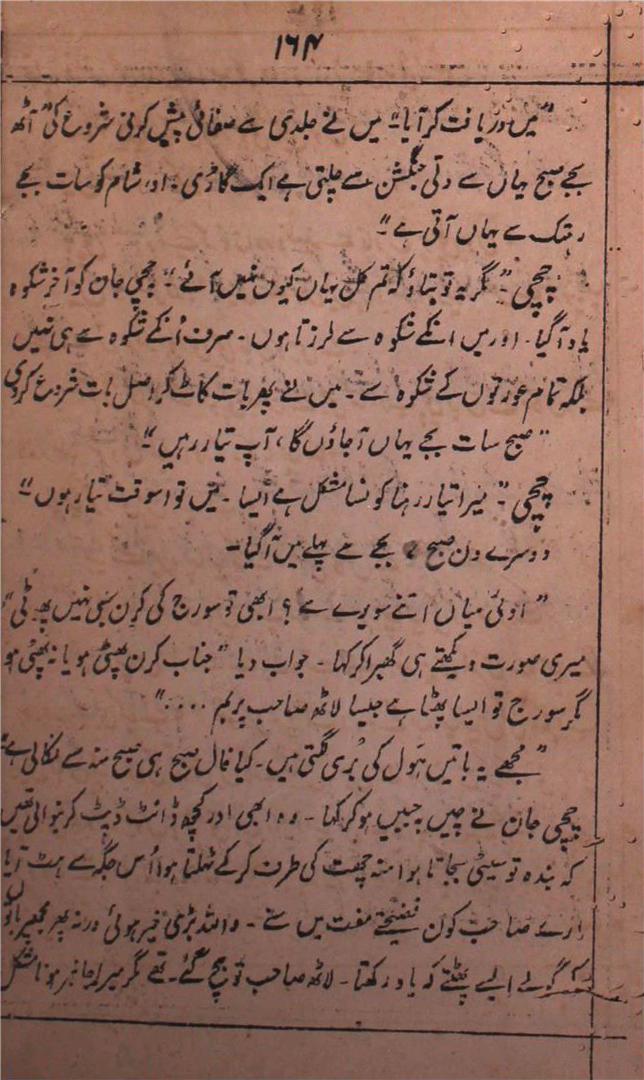 ۱۶۴
"میں دریافت کر آیا" میں نے جلدی سے صفائی پیش کرنی شروع کی" آٹھ
بجے صبح یہاں سے دتی جنگشن سے چلتی ہے ایک گاڑی ۔ اور شام کو سات بجے
رہتک سے یہاں آتی ہے"
چچی ۔" مگر یہ تو بتاؤ کہ تم کل یہاں کیوں نہیں آئے"۔ چچی جان کو آخر شکوہ
یاد آگیا ۔ اور میں انکے شکوہ سے لرزتا ہوں ۔ صرف اُنکے شکوہ سے ہی نہیں
بلکہ تمام عورتوں کے شکوہ سے ۔ میں نے پھر بات کاٹ کر اصل بات شروع کردی
"صبح سات بجے یہاں آجاؤں گا ، آپ تیار رہیں"
چچی ۔" میرا تیار رہنا کونسا مشکل ہے ایسا ۔ میں تو اسوقت تیار ہوں"
دوسرے دن صبح ۷ بجے سے پہلے میں آگیا ۔
" اوئی میاں اتنے سویرے سے ؟ ابھی تو سورج کی کرن بھی نہیں پھوٹی"
میری صورت دیکھتے ہی گھبرا کر کہا ۔ جواب دیا "جناب کرن پھٹی ہو یا نہ پھٹی ہو
مگر سورج تو ایسا پھٹا ہے جیسا لاٹھ صاحب پر بم ...."
"مجھے یہ باتیں ہَول کی بُری لگتی ہیں ۔ کیا فال صبح ہی صبح منہ سے نکالی ہے"
چچی جان نے چیں جبیں ہو کر کہا ۔ وہ ابھی اور کچھ ڈانٹ ڈپٹ کرنیوالی تھیں
کہ بندہ تو سیٹی بجاتا ہوا منہ چھت کی طرف کرکے ٹہلتا ہوا اُس جگہ سے ہٹ آیا
ارے صاحب کون فضیحتے مفت میں سنے ۔ واللہ بڑی خیر ہوئی ورنہ پھر مجھپر باتوں
کے گولے ایسے پھٹتے کہ یاد رکھتا ۔ لاٹھ صاحب تو بچ گئے ۔ تھے مگر میرا جانبر ہونا مشکل